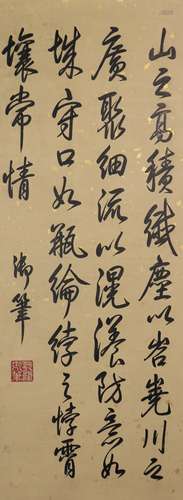 山之高積纖塵以岧嶤川之
廣聚細流以滉瀁防意如
城守口如瓶綸綍之悖霄
壤常情
御筆